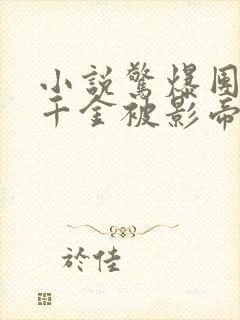 小説驚爆圈
千金被影帝
於佳